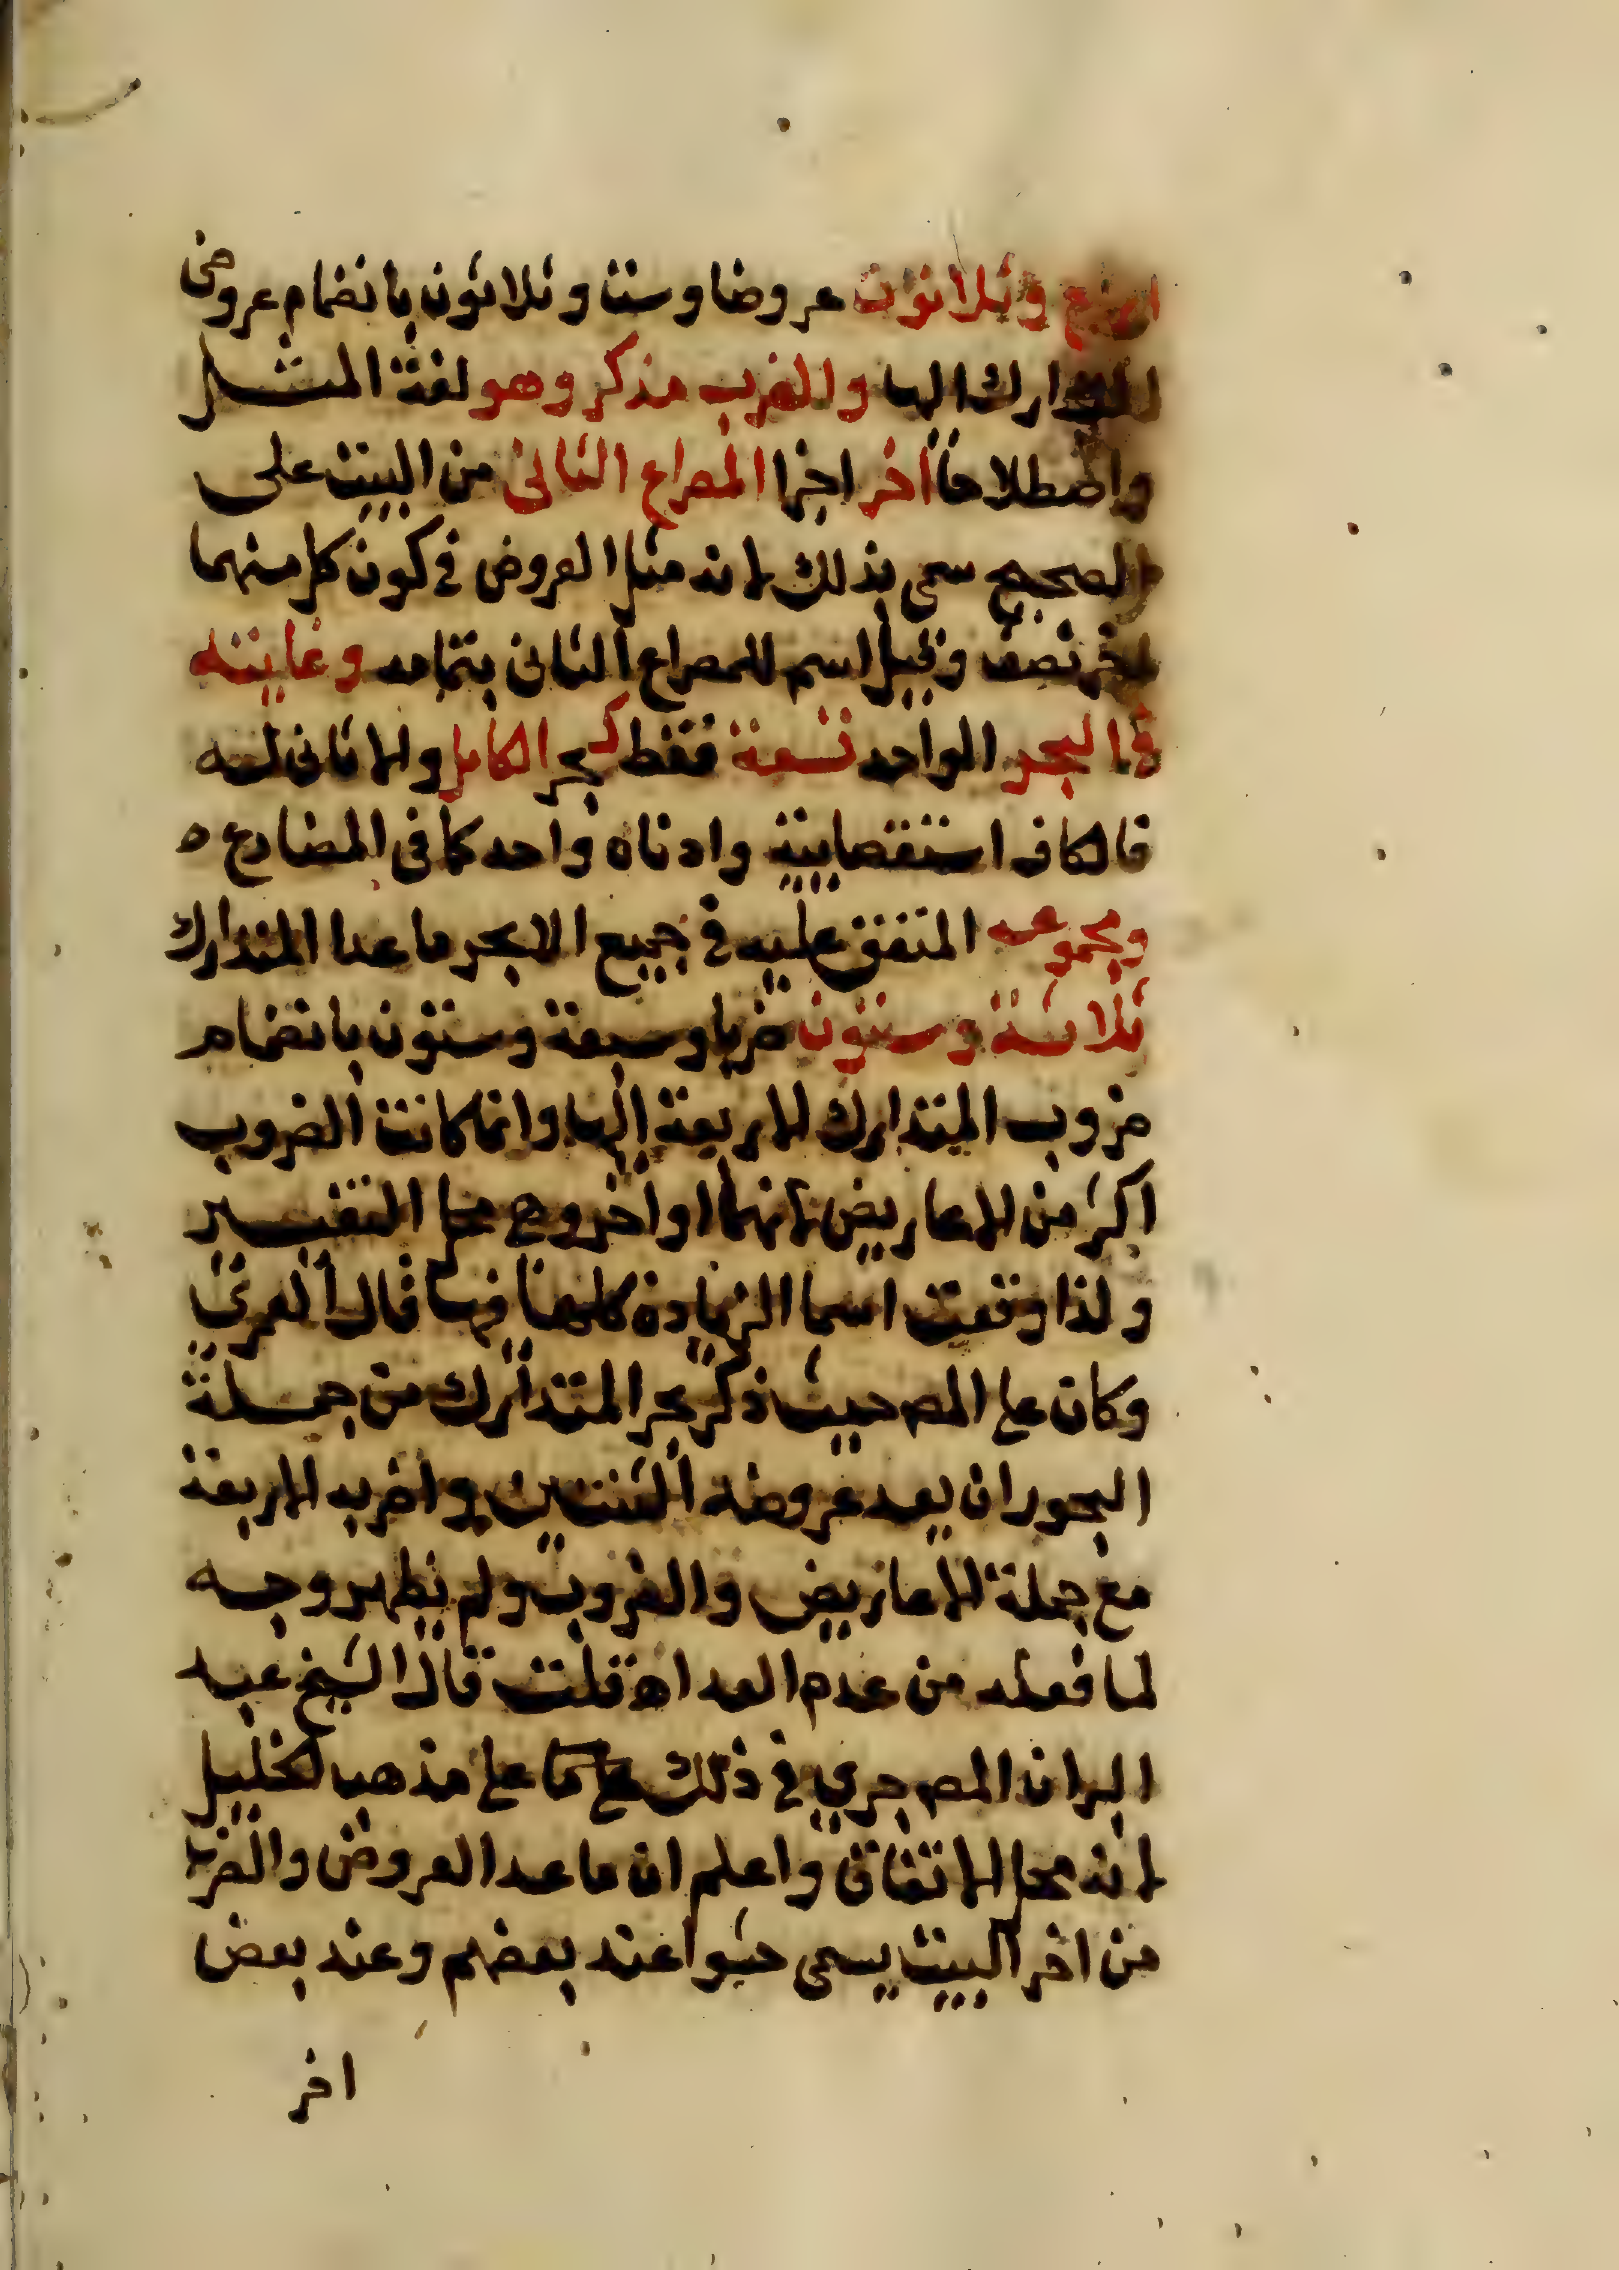 اربع وثلاثون عروضا وستا وثلاثون بانضمام عروضى
المتدارك اليها والضرب مذكر وهو لغة المثل
واصطلاحا اخر اجزا المصراع الثانى من البيت على
الصحيح سمى بذلك لانه مثل العروض فى كون كل منهما
اخر نصف وقيل اسم للمصراع الثانى بتمامه وغايته
فى البحر الواحد تسعة فقط كبحر الكامل ولا ثانى له
فالكاف استقصايية وادناه واحد كما فى المضارع ه
ومجموعه المتفق عليه فى جميع الابحر ما عدا المتدارك
ثلاثة وستون ضربا وسبعة وستون بانضمام
ضروب المتدارك الاربعة اليها وانما كانت الضروب
اكثر من الاعاريض لانها اواخر وهى محل التغيير
ولذا وقعت اسما الزيادة كلها فيها قال العمرى
وكان على المص حيث ذكر بحر المتدارك من جملة
البحور ان يعد عروضه الثنتين واضربه الاربعة
مع جملة الاعاريض والضروب ولم يظهر وجه
لما فعله من عدم العد اه قلت قال الشيخ عبد
البر ان المص جري فى ذلك كما على مذهب الخليل
لانه محل الاتفاق واعلم ان ما عدا العروض والضرب
من اخر البيت يسمى حشوا عند بعضهم وعند بعض
اخر